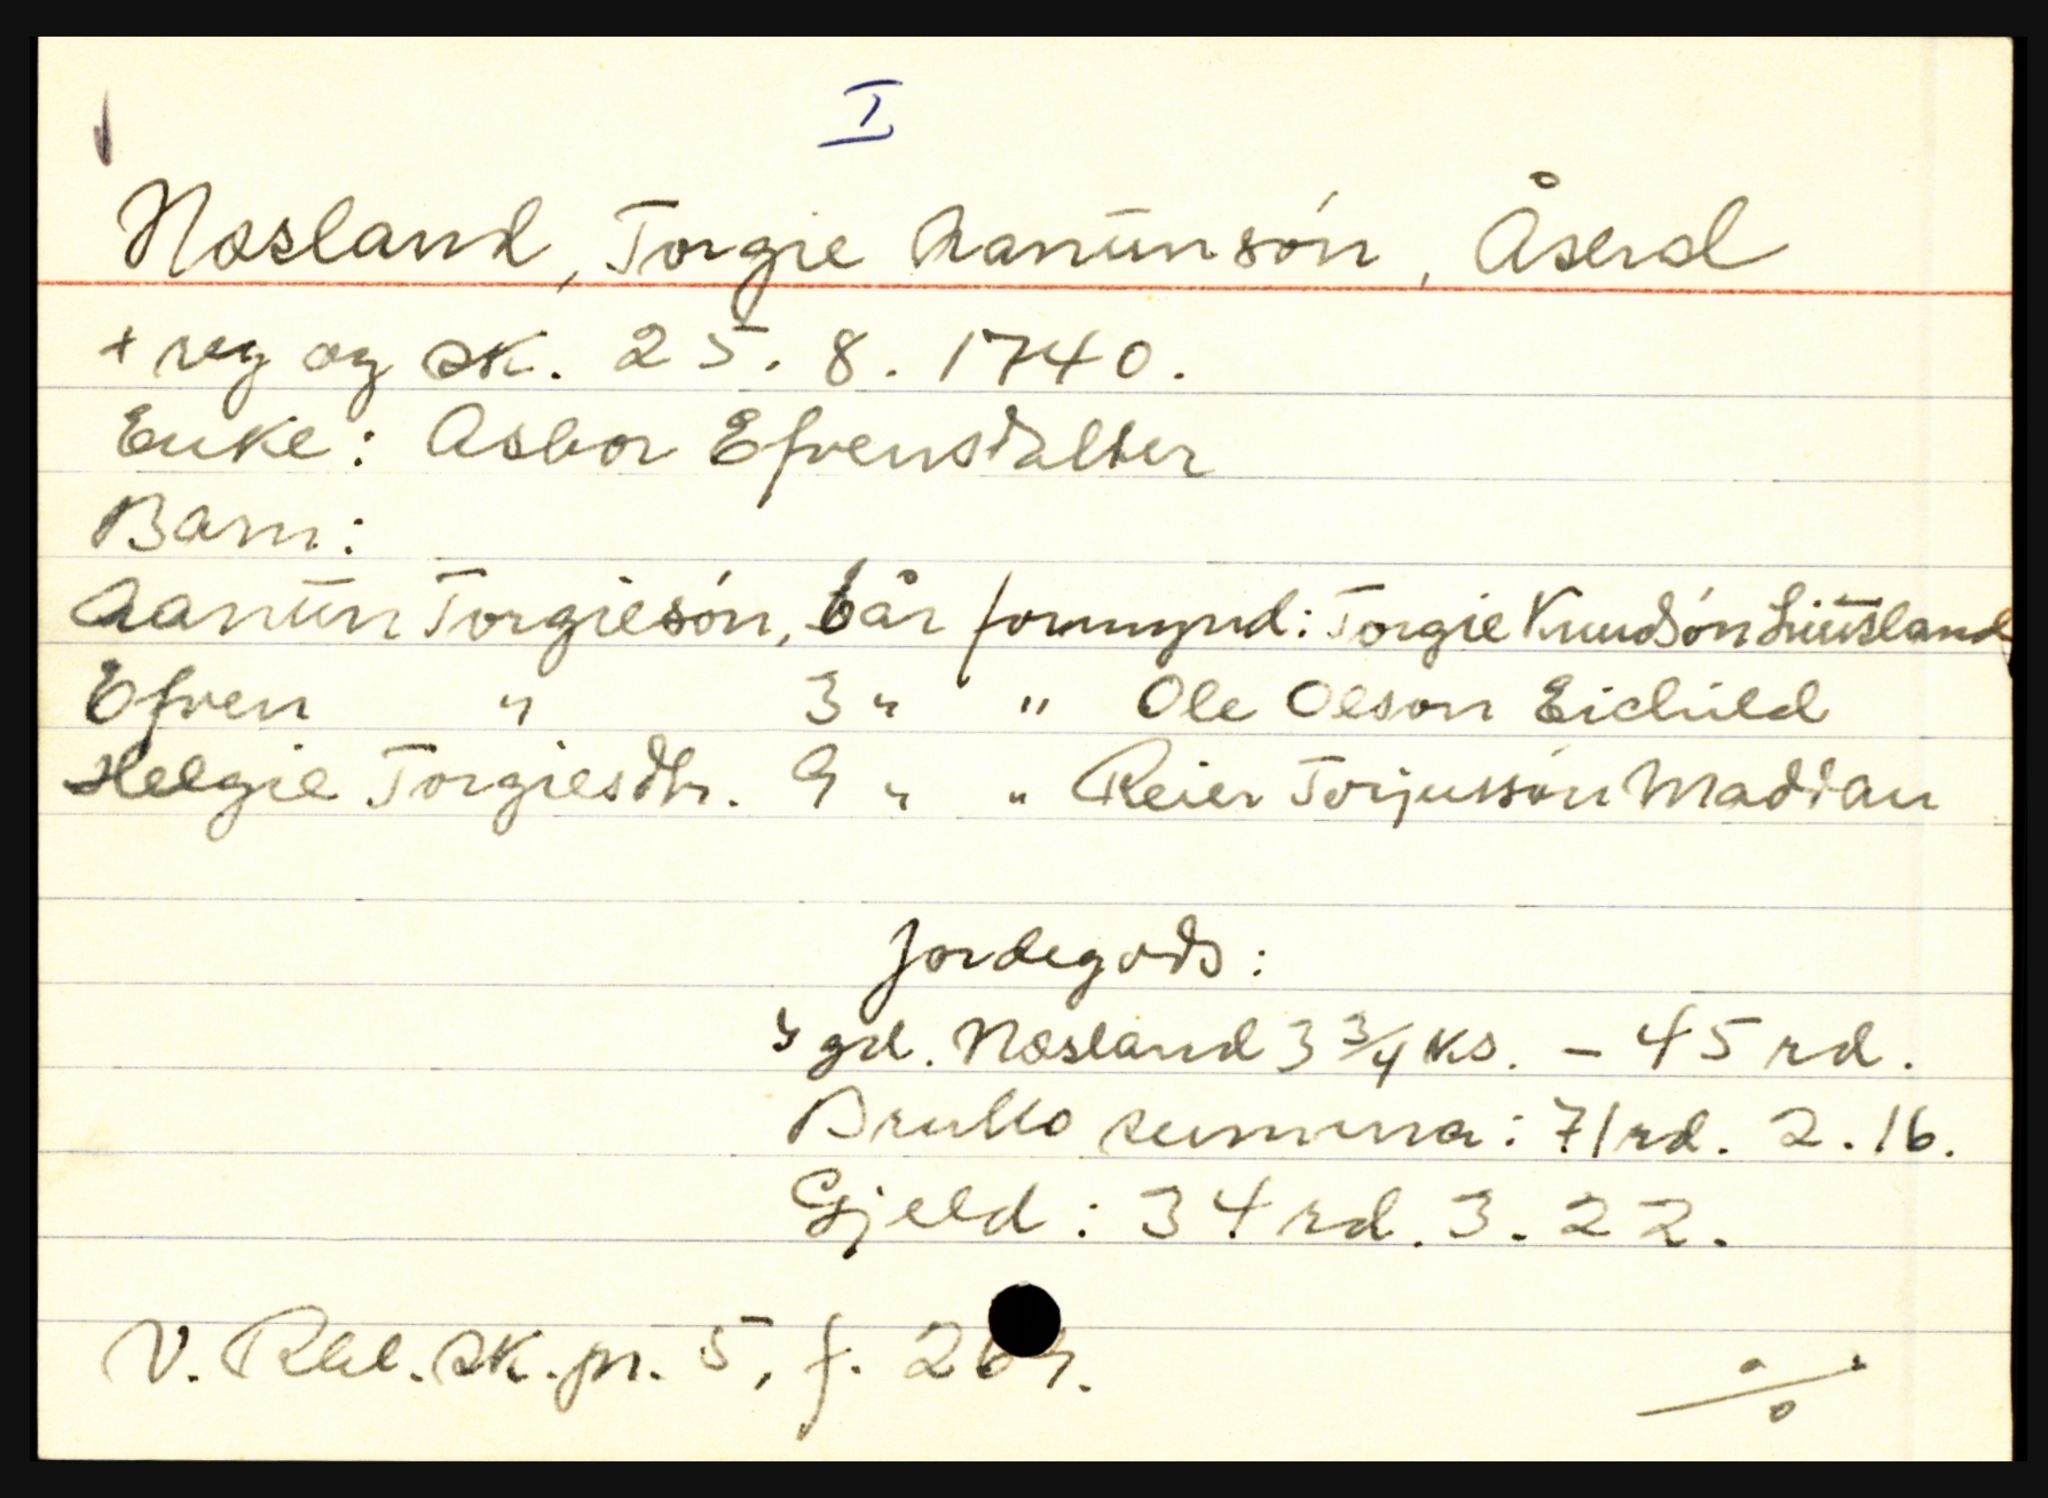 I
Næsland, Torgie Aanunsón, Åseral
+ reg og sk. 25. 8. 1740.
Enke: Asbor Efrensdatter
Barn:
Aanun Torgiesón, 6 år formynd: Torgie Knudsón Liusland
Efren " 3 " " Ole Olson Eichild
Helgie Torgiesdtr. 9 " " Reier Torjussón Maddan
Jordegods:
i gd. Næsland 3 3/4 ks. - 45 rd.
Brutto summa: 71 rd. 2. 16.
Gjeld: 34 rd. 3. 22.
V. Råb. sk. pr. 5, f.